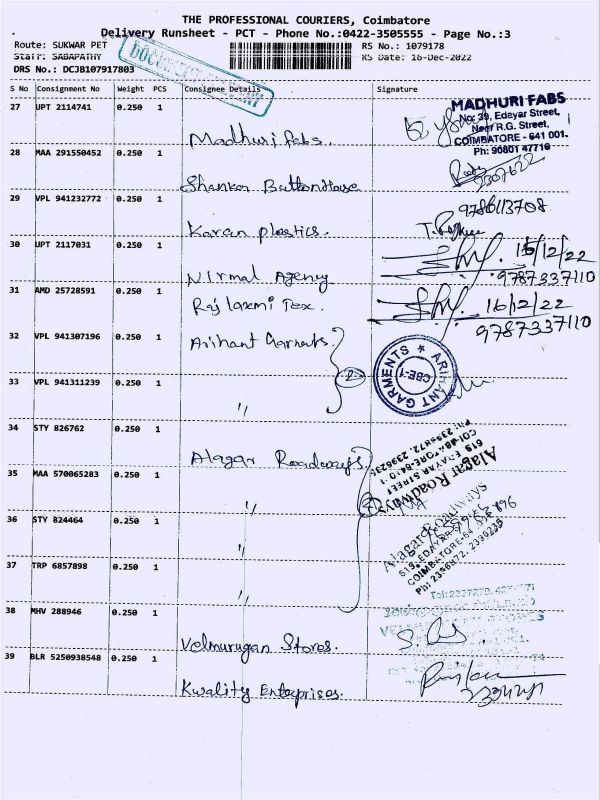 THE PROFESSIONAL COURIERS, Coimbatore
Delivery Runsheet - PCT - Phone No.:0422-3505555 - Page No.:3
Route: SUKWAR PET RS No.: 1079178
Staff: SABAPATHY RS Date: 16-Dec-2022
DRS No.: DCJB107917803
S No Consignment No Weight PCS Consignee Details Signature
27 UPT 2114741 0.250 1 Madhuri fabs.
MADHURI FABS
No: 39, Edayar Street,
Near R.G. Street,
COIMBATORE - 641 001.
Ph: 90801 47716
28 MAA 291550452 0.250 1 Shankar Button House
29 VPL 941232772 0.250 1 Karan plastics.
9786113708
30 UPT 2117031 0.250 1 Nirmal Agency
15/12/22
9787337110
31 AMD 25728591 0.250 1 Raj laxmi Tex.
16/12/22
9787337110
32 VPL 941307196 0.250 1 Arihant Garments.
2
ARIHANT GARMENTS
CBE-1
33 VPL 941311239 0.250 1 "
34 STY 826762 0.250 1 Alagar Roadways
Alagar Roadways
619, EDAYAR STREET
COIMBATORE-641001
35 MAA 570065283 0.250 1 "
36 STY 824464 0.250 1 "
Alagar Roadways
619, EDAYAR STREET
Ph: 2396872, 2396235
37 TRP 6857898 0.250 1 "
38 MHV 288946 0.250 1 Velmurugan Stores.
39 BLR 5250938548 0.250 1 Kwality Enterprises.